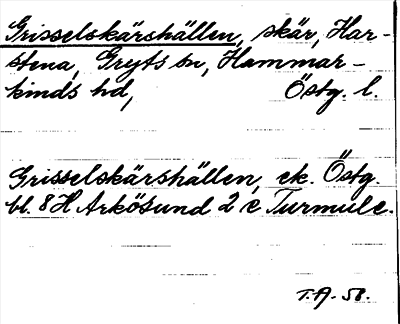 Grisselskärshällen, skär, Har-
stena, Gryts sn, Hammar-
kinds hd, Östg. l.
Grisselskärshällen, ek. Östg.
bl. 8 H Arkösund 2 c Turmulc.
T.A. -58.